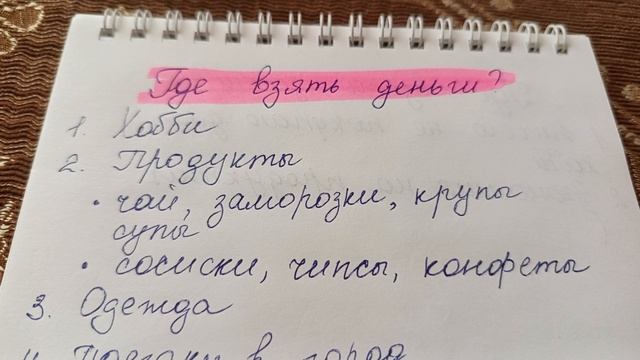 Где взять деньги?
1. Хобби
2. Продукты
• чай, заморозки, крупы
супы
• сосиски, чипсы, конфеты
3. Одежда
4. в город